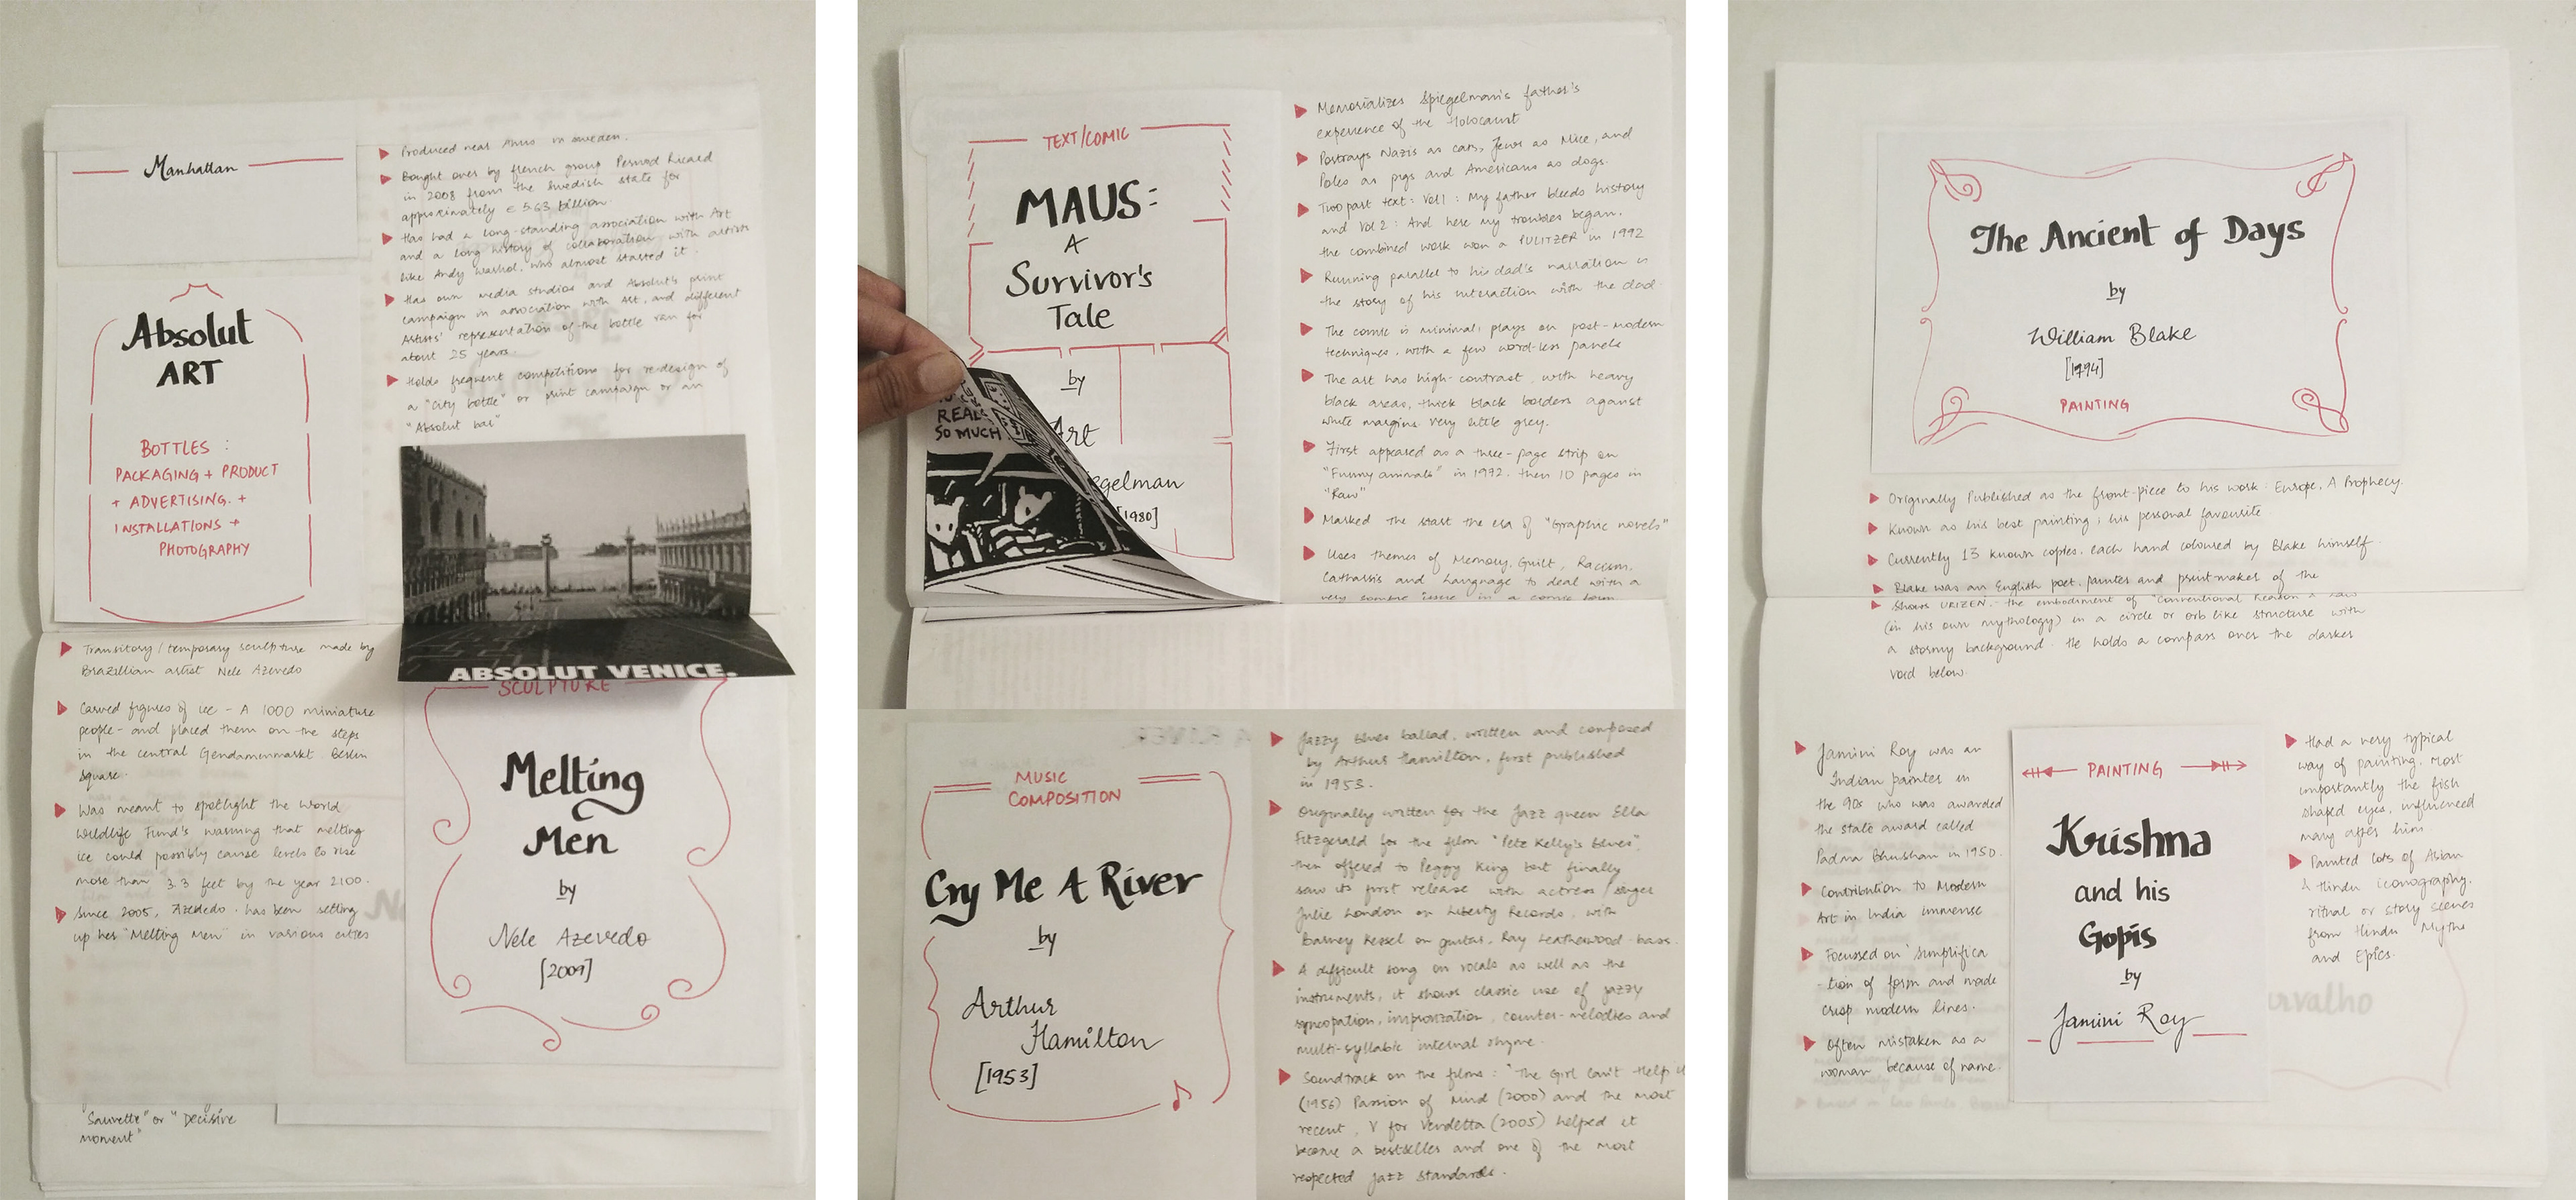 Manhattan
Absolut
ART
BOTTLES :
PACKAGING + PRODUCT
+ ADVERTISING. +
INSTALLATIONS +
PHOTOGRAPHY
Produced near Ahus in Sweden.
Bought over by french group Pernod Ricard
in 2008 from the Swedish state for
approximately € 5.63 billion.
Has had a long-standing association with Art
and a long history of collaboration with artists
like Andy Warhol, who almost started it.
Has own media studios and Absolut's print
campaign in association with Art, and different
Artists' representation of the bottle ran for
about 25 years.
Holds frequent competitions for re-design of
a "city bottle" or print campaign or an
"Absolut bar"
ABSOLUT VENICE.
Transitory / temporary sculpture made by
Brazillian artist Nele Azevedo
Carved figures of ice - A 1000 miniature
people - and placed them on the steps
in the central Gendamenmarkt Berlin
square.
Was meant to spotlight the World
Wildlife Fund's warning that melting
ice could possibly cause levels to rise
more than 3.3 feet by the year 2100.
Since 2005, Azededo has been setting
up her "Melting Men" in various cities
SCULPTURE
Melting
Men
by
Nele Azevedo
[2009]
"Sauvette" or "Decisive
moment"
TEXT/COMIC
MAUS:
A
Survivor's
Tale
by
Art
egelman
[1980]
REAL
SO MUCH
Memorializes Spiegelman's father's
experience of the Holocaust
Portrays Nazis as cats, Jews as Mice, and
Poles as pigs and Americans as dogs.
Two part text: Vol 1 : My father bleeds history
and Vol 2 : And here my troubles began.
the combined work won a PULITZER in 1992
Running parallel to his dad's narration is
the story of his interaction with the dad.
The comic is minimal, plays on post-modern
techniques, with a few word-less panels
The art has high-contrast, with heavy
black areas, thick black borders against
white margins. very little grey.
First appeared as a three-page strip on
"Funny animals" in 1972. then 10 pages in
"Raw"
Marked the start the era of "Graphic novels"
Uses themes of Memory, Guilt, Racism,
Catharsis and Language to deal with a
very sombre issue in a comic form
MUSIC
COMPOSITION
Cry Me A River
by
Arthur
Hamilton
[1953]
Jazzy blues ballad, written and composed
by Arthur Hamilton, first published
in 1953.
Originally written for the Jazz queen Ella
Fitzgerald for the film "Pete Kelly's Blues",
then offered to Peggy King but finally
saw its first release with actress/singer
Julie London on Liberty Records, with
Barney Kessel on guitar, Ray Leatherwood-bass.
A difficult song on vocals as well as the
instruments, it shows classic use of jazzy
syncopation, improvization, counter-melodies and
multi-syllable internal rhyme.
Soundtrack on the films : "The Girl Can't Help it
(1956) Passion of Mind (2000) and the most
recent, V for Vendetta (2005) helped it
become a bestseller and one of the most
respected jazz standards.
The Ancient of Days
by
William Blake
[1794]
PAINTING
Originally Published as the front-piece to his work: Europe, A Prophecy.
Known as his best painting ; his personal favourite
Currently 13 known copies, each hand coloured by Blake himself.
Blake was an English poet, painter and print-maker of the
Shows URIZEN - the embodiment of "Conventional Reason & Law
(in his own mythology) in a circle or orb like structure with
a stormy background. He holds a compass over the darker
void below.
Jamini Roy was an
Indian painter in
the 90s who was awarded
the state award called
Padma Bhushan in 1950.
Contribution to Modern
Art in India immense
Focussed on simplifica
-tion of form and made
crisp modern lines.
Often mistaken as a
woman because of name.
PAINTING
Krishna
and his
Gopis
by
Jamini Roy
Had a very typical
way of painting. Most
importantly the fish
shaped eyes, influenced
many after him
Painted lots of Asian
& Hindu iconography.
ritual or story scenes
from Hindu Myths
and Epics.
arvalho